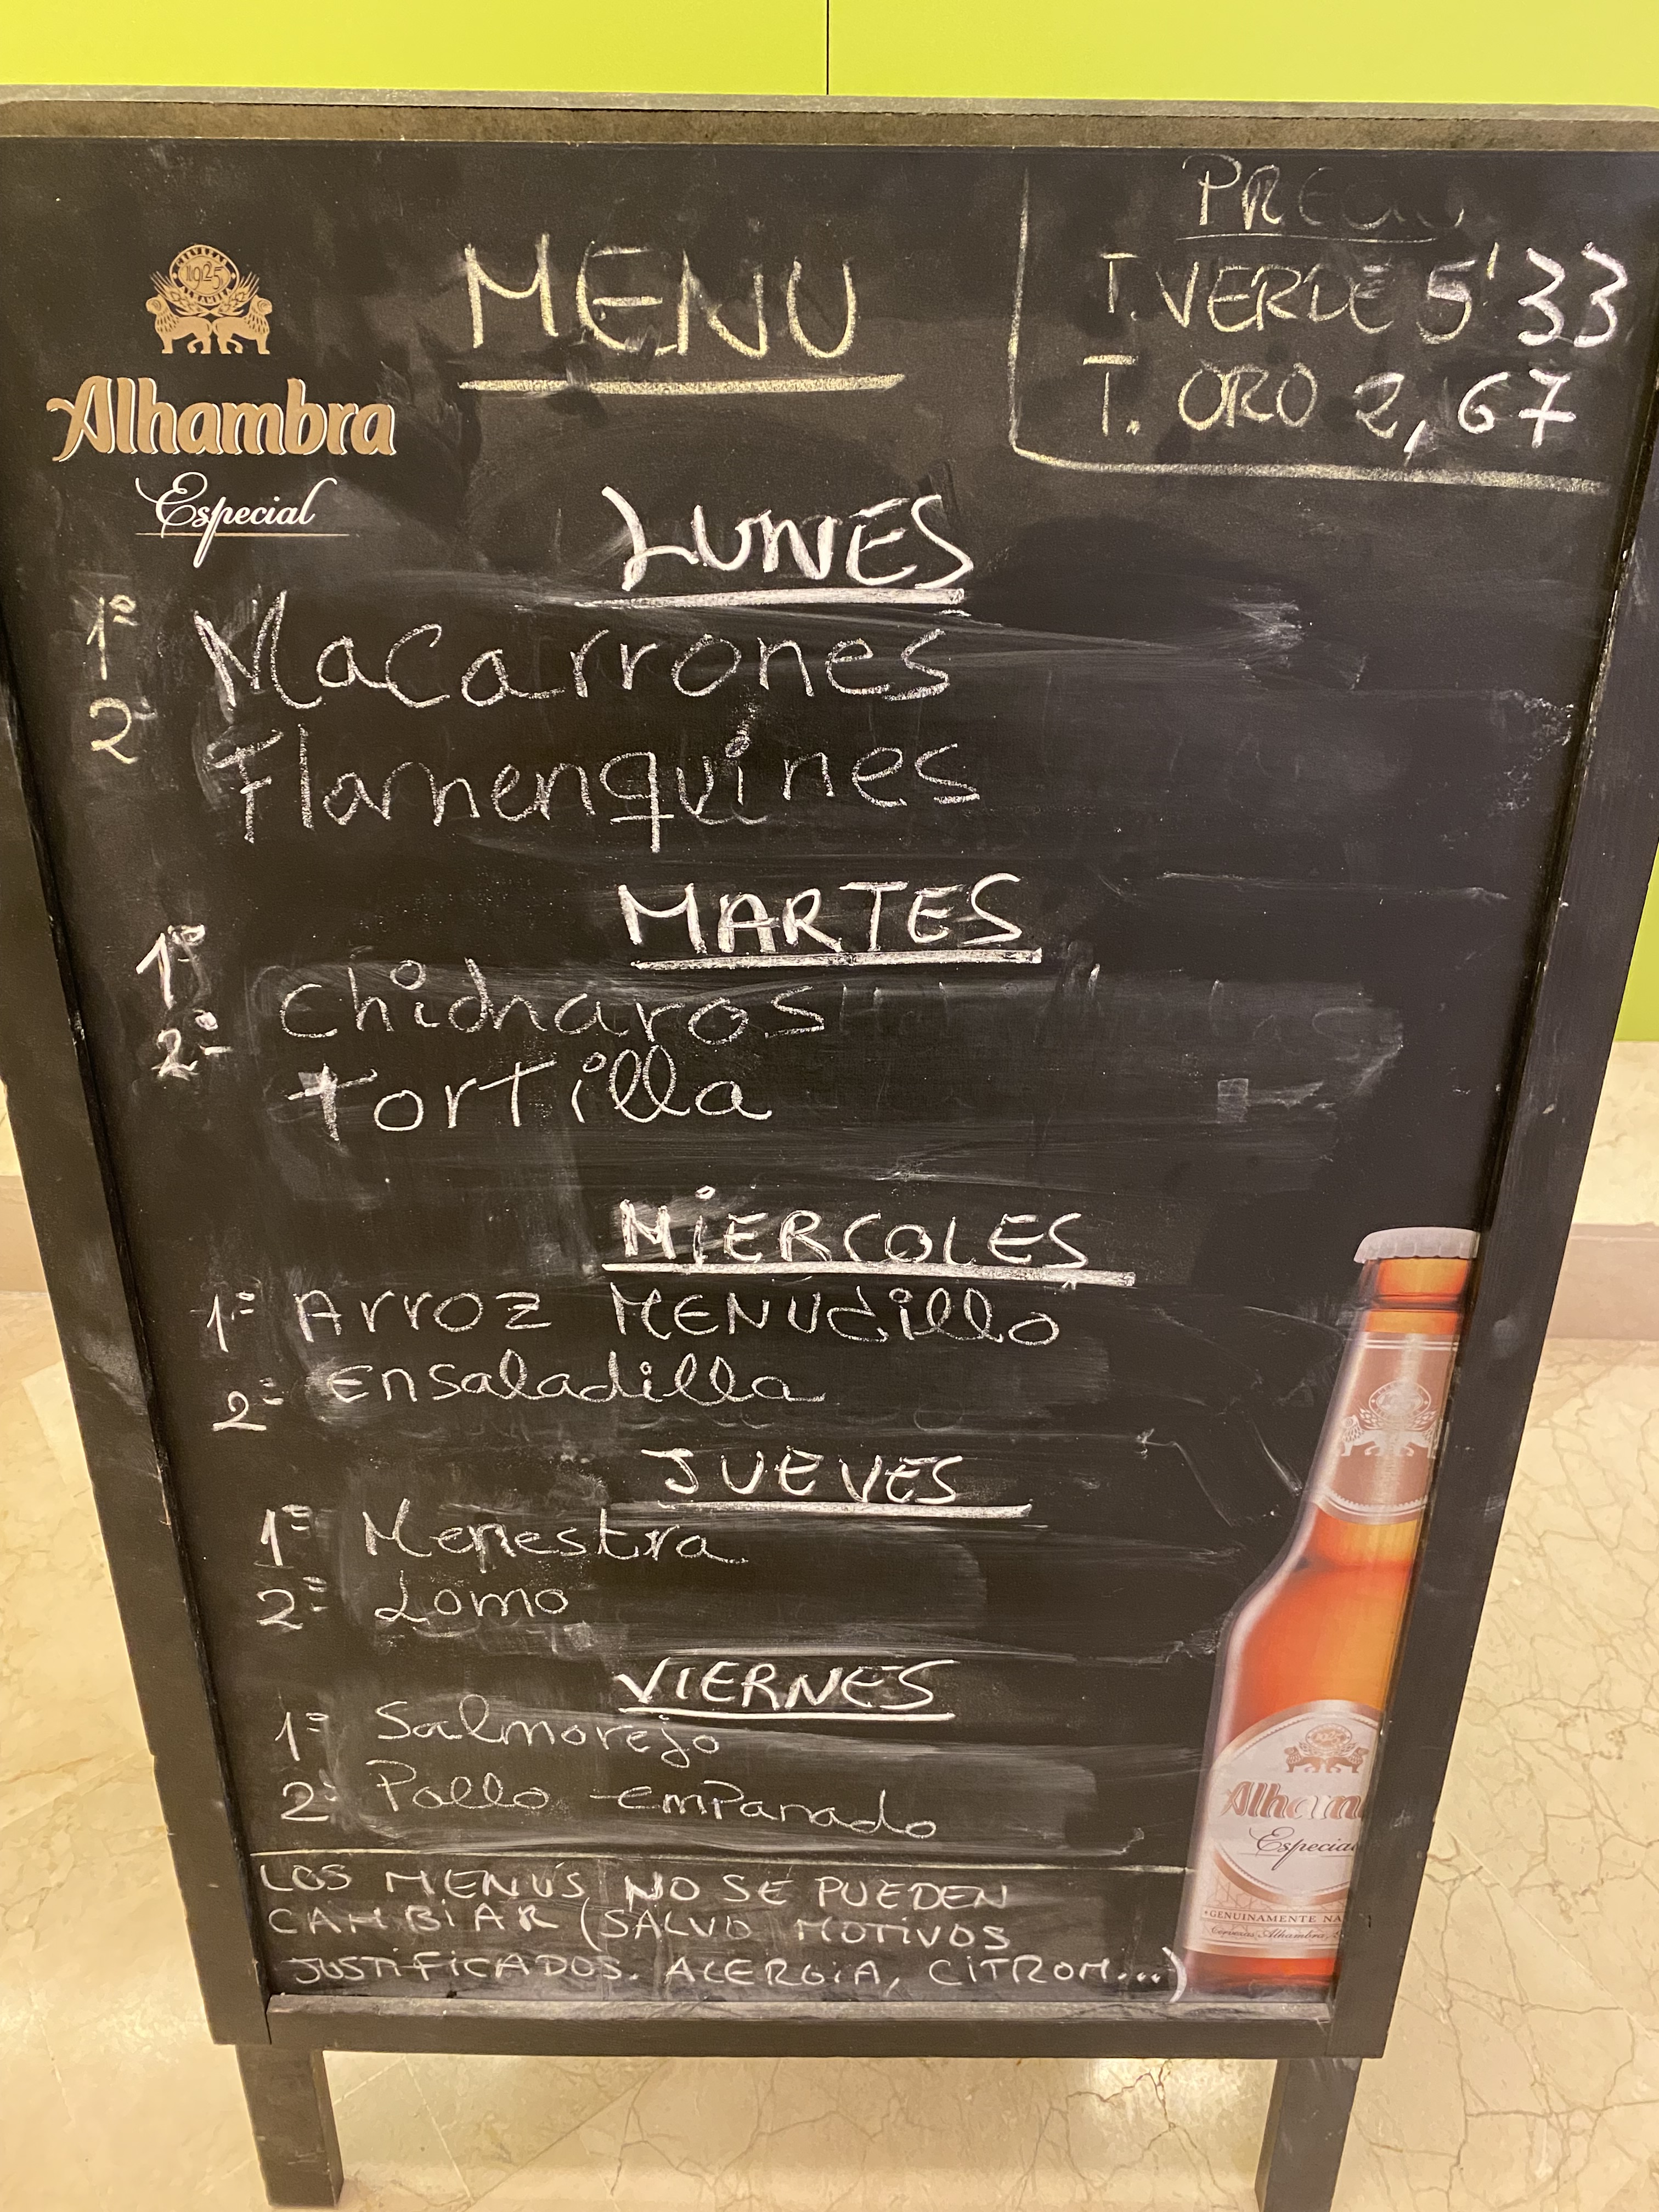 PRECIO
T. VERDE 5'33
T. ORO 2,67
MENU
1925
Alhambra
Especial
LUNES
1º Macarrones
2º Flamenquines
MARTES
1º Chicharos
2º tortilla
MIERCOLES
1º Arroz MENUdillo
2º Ensaladilla
JUEVES
1º Menestra
2º Lomo
VIERNES
1º Salmorejo
2º Pollo empanado
LOS MENÚS NO SE PUEDEN
CAMBIAR (SALVO MOTIVOS
JUSTIFICADOS. ALERGIA, CITROM...)
Alham
Especial
GENUINAMENTE NA
Cervezas Alhambra, S